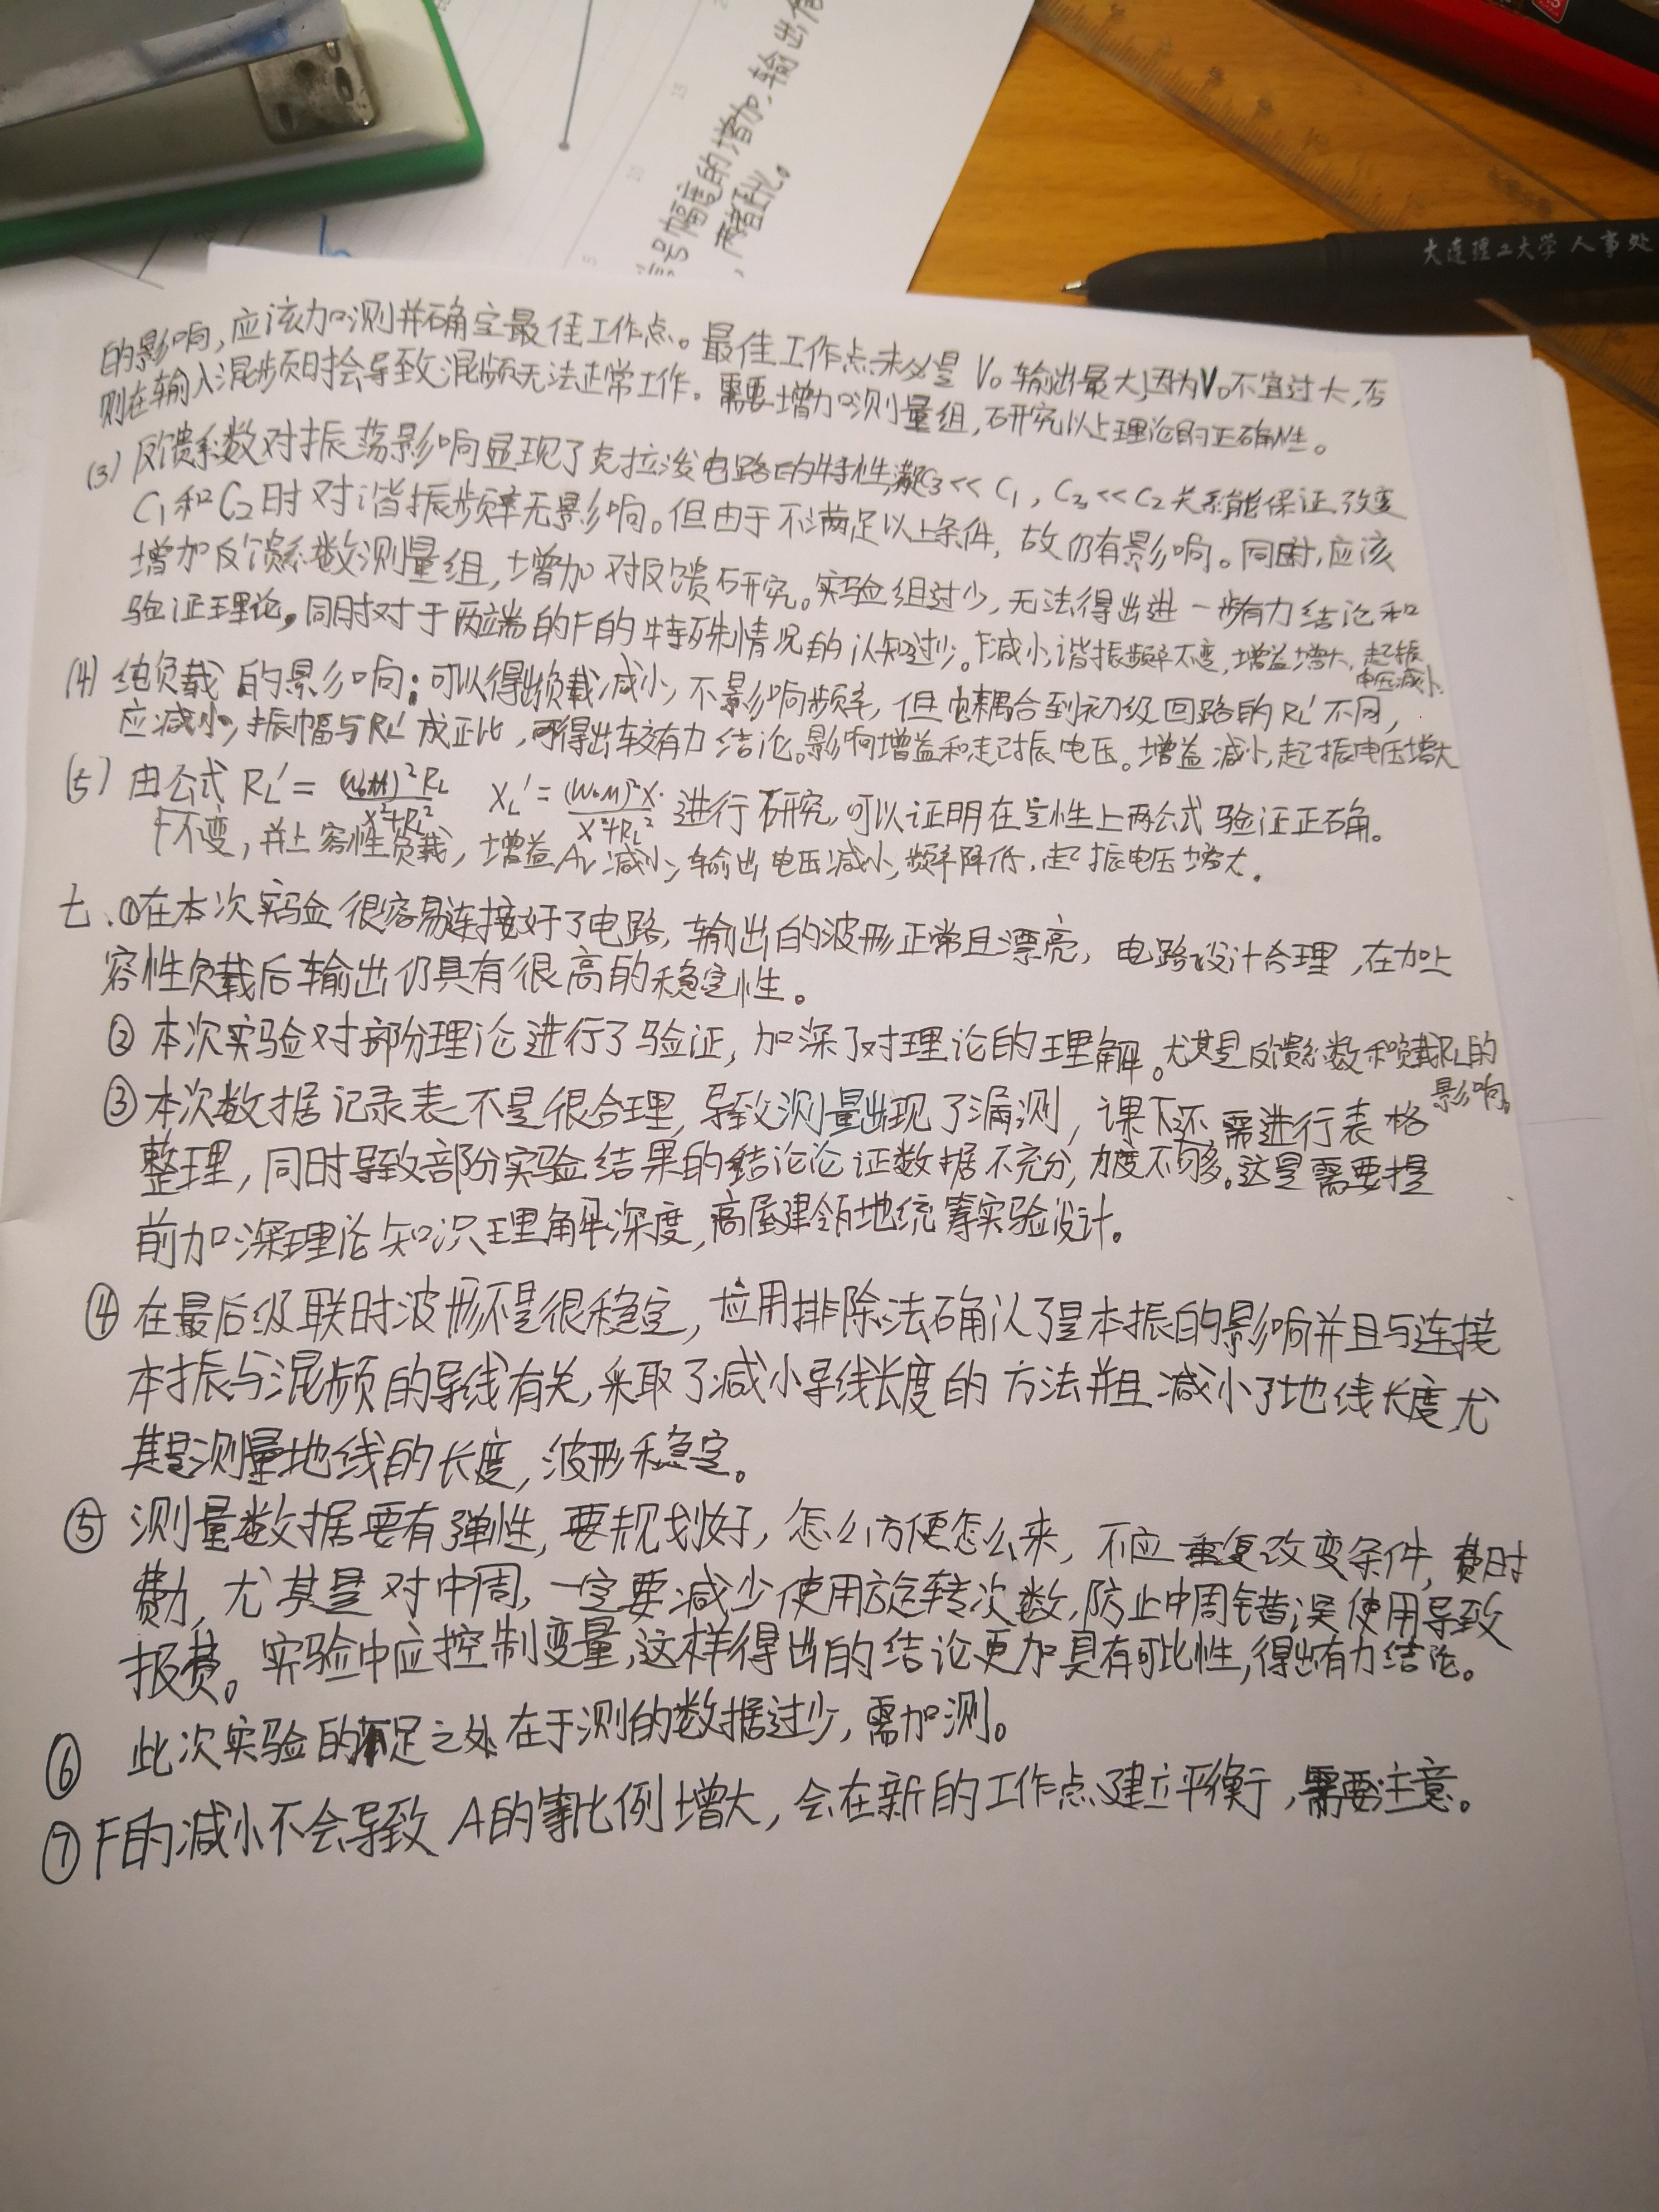 号幅度的增加,输出信
,两者正比。
大连理工大学 人事处
的影响,应该加测并确定最佳工作点。最佳工作点未必是 V₀ 输出最大,因为V₀不宜过大,否
则在输入混频时会导致混频无法正常工作。需要增加测量组,研究以上理论的正确性。
(3) 反馈系数对振荡影响显现了克拉泼电路的特性,满足C₃<<C₁,C₃<<C₂关系能保证改变
C₁和C₂时对谐振频率无影响。但由于不满足以上条件,故仍有影响。同时,应该
增加反馈系数测量组,增加对反馈研究。实验组过少,无法得出进一步有力结论和
验证理论。同时对于两端的F的特殊情况的认知过少。F减小,谐振频率不变,增益增大,起振
电压减小
(4) 纯负载的影响:可以得出负载减小,不影响频率,但电耦合到初级回路的RL'不同,
应减小,振幅与RL'成正比,可得出较有力结论。影响增益和起振电压。增益减小,起振电压增大
(5) 由公式 RL'=(ω₀M)²RL/X²+RL² XL'=(ω₀M)²X/X²+RL² 进行研究,可以证明在定性上两公式验证正确。
F不变,并上容性负载,增益Av减小,输出电压减小,频率降低,起振电压增大。
七、①在本次实验很容易连接好了电路,输出的波形正常且漂亮,电路设计合理,在加上
容性负载后输出仍具有很高的稳定性。
② 本次实验对部份理论进行了验证,加深了对理论的理解。尤其是反馈系数和负载RL的
影响。
③本次数据记录表不是很合理,导致测量出现了漏测,课下还需进行表格
整理,同时导致部分实验结果的结论论证数据不充分,力度不够。这是需要提
前加深理论知识理解深度,高屋建瓴地统筹实验设计。
④ 在最后级联时波形不是很稳定,应用排除法确认了是本振的影响并且与连接
本振与混频的导线有关,采取了减小导线长度的方法并且减小了地线长度,尤
其是测量地线的长度,波形稳定。
⑤ 测量数据要有弹性,要规划好,怎么方便怎么来,不应重复改变条件,费时
费力,尤其是对中周,一定要减少使用旋转次数,防止中周错误使用导致
报费。实验中应控制变量,这样得出的结论更加具有可比性,得出有力结论。
⑥ 此次实验的不足之处在于测的数据过少,需加测。
⑦ F的减小不会导致 A的等比例增大,会在新的工作点建立平衡,需要注意。